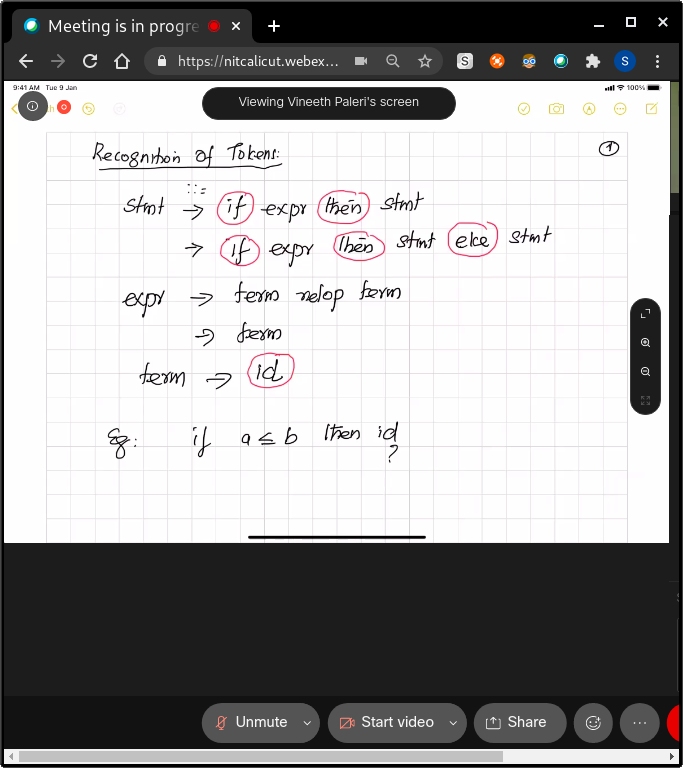 Meeting is in progre
https://nitcalicut.webex...
S
S
9:41 AM Tue 9 Jan
100%
Viewing Vineeth Paleri's screen
Recognition of Tokens:
1
::=
stmt → if expr then stmt
→ if expr then stmt else stmt
expr → term relop term
→ term
term → id
Eg: if a ≤ b then id
?
Unmute
Start video
Share